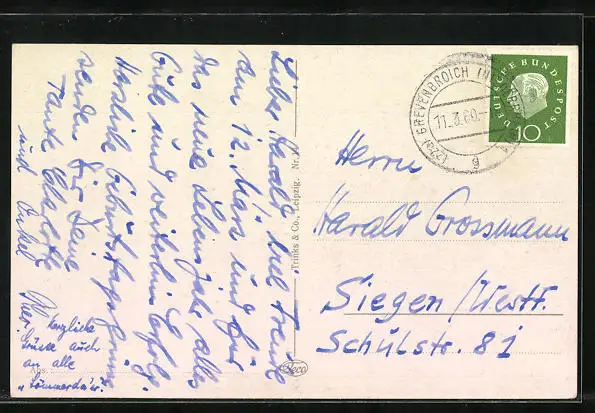 Lieber Harald! Viel Freude
am 12. März und für
das neue Lebensjahr alles
Gute und weiterhin Erfolg.
Herzliche Geburtstagsgrüsse
senden Dir Deine
Tante Charlotte
und Onkel
Herzliche
Grüsse auch
an alle
Abs.
Trinks & Co., Leipzig. Nr.
Teco
GREVENBROICH
11.3.60.
(22a)
g
DEUTSCHE BUNDESPOST
10
Herrn
Harald Grossmann
Siegen/Westf.
Schulstr. 81